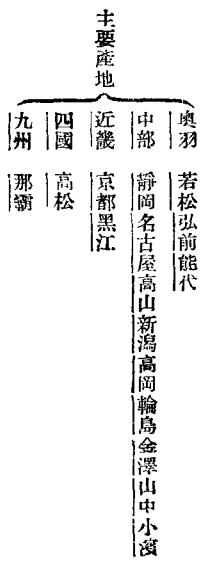 主要產地
奧羽 若松弘前能代
中部 靜岡名古屋高山新潟高岡輪島金澤山中小濱
近畿 京都黑江
四國 高松
九州 那覇